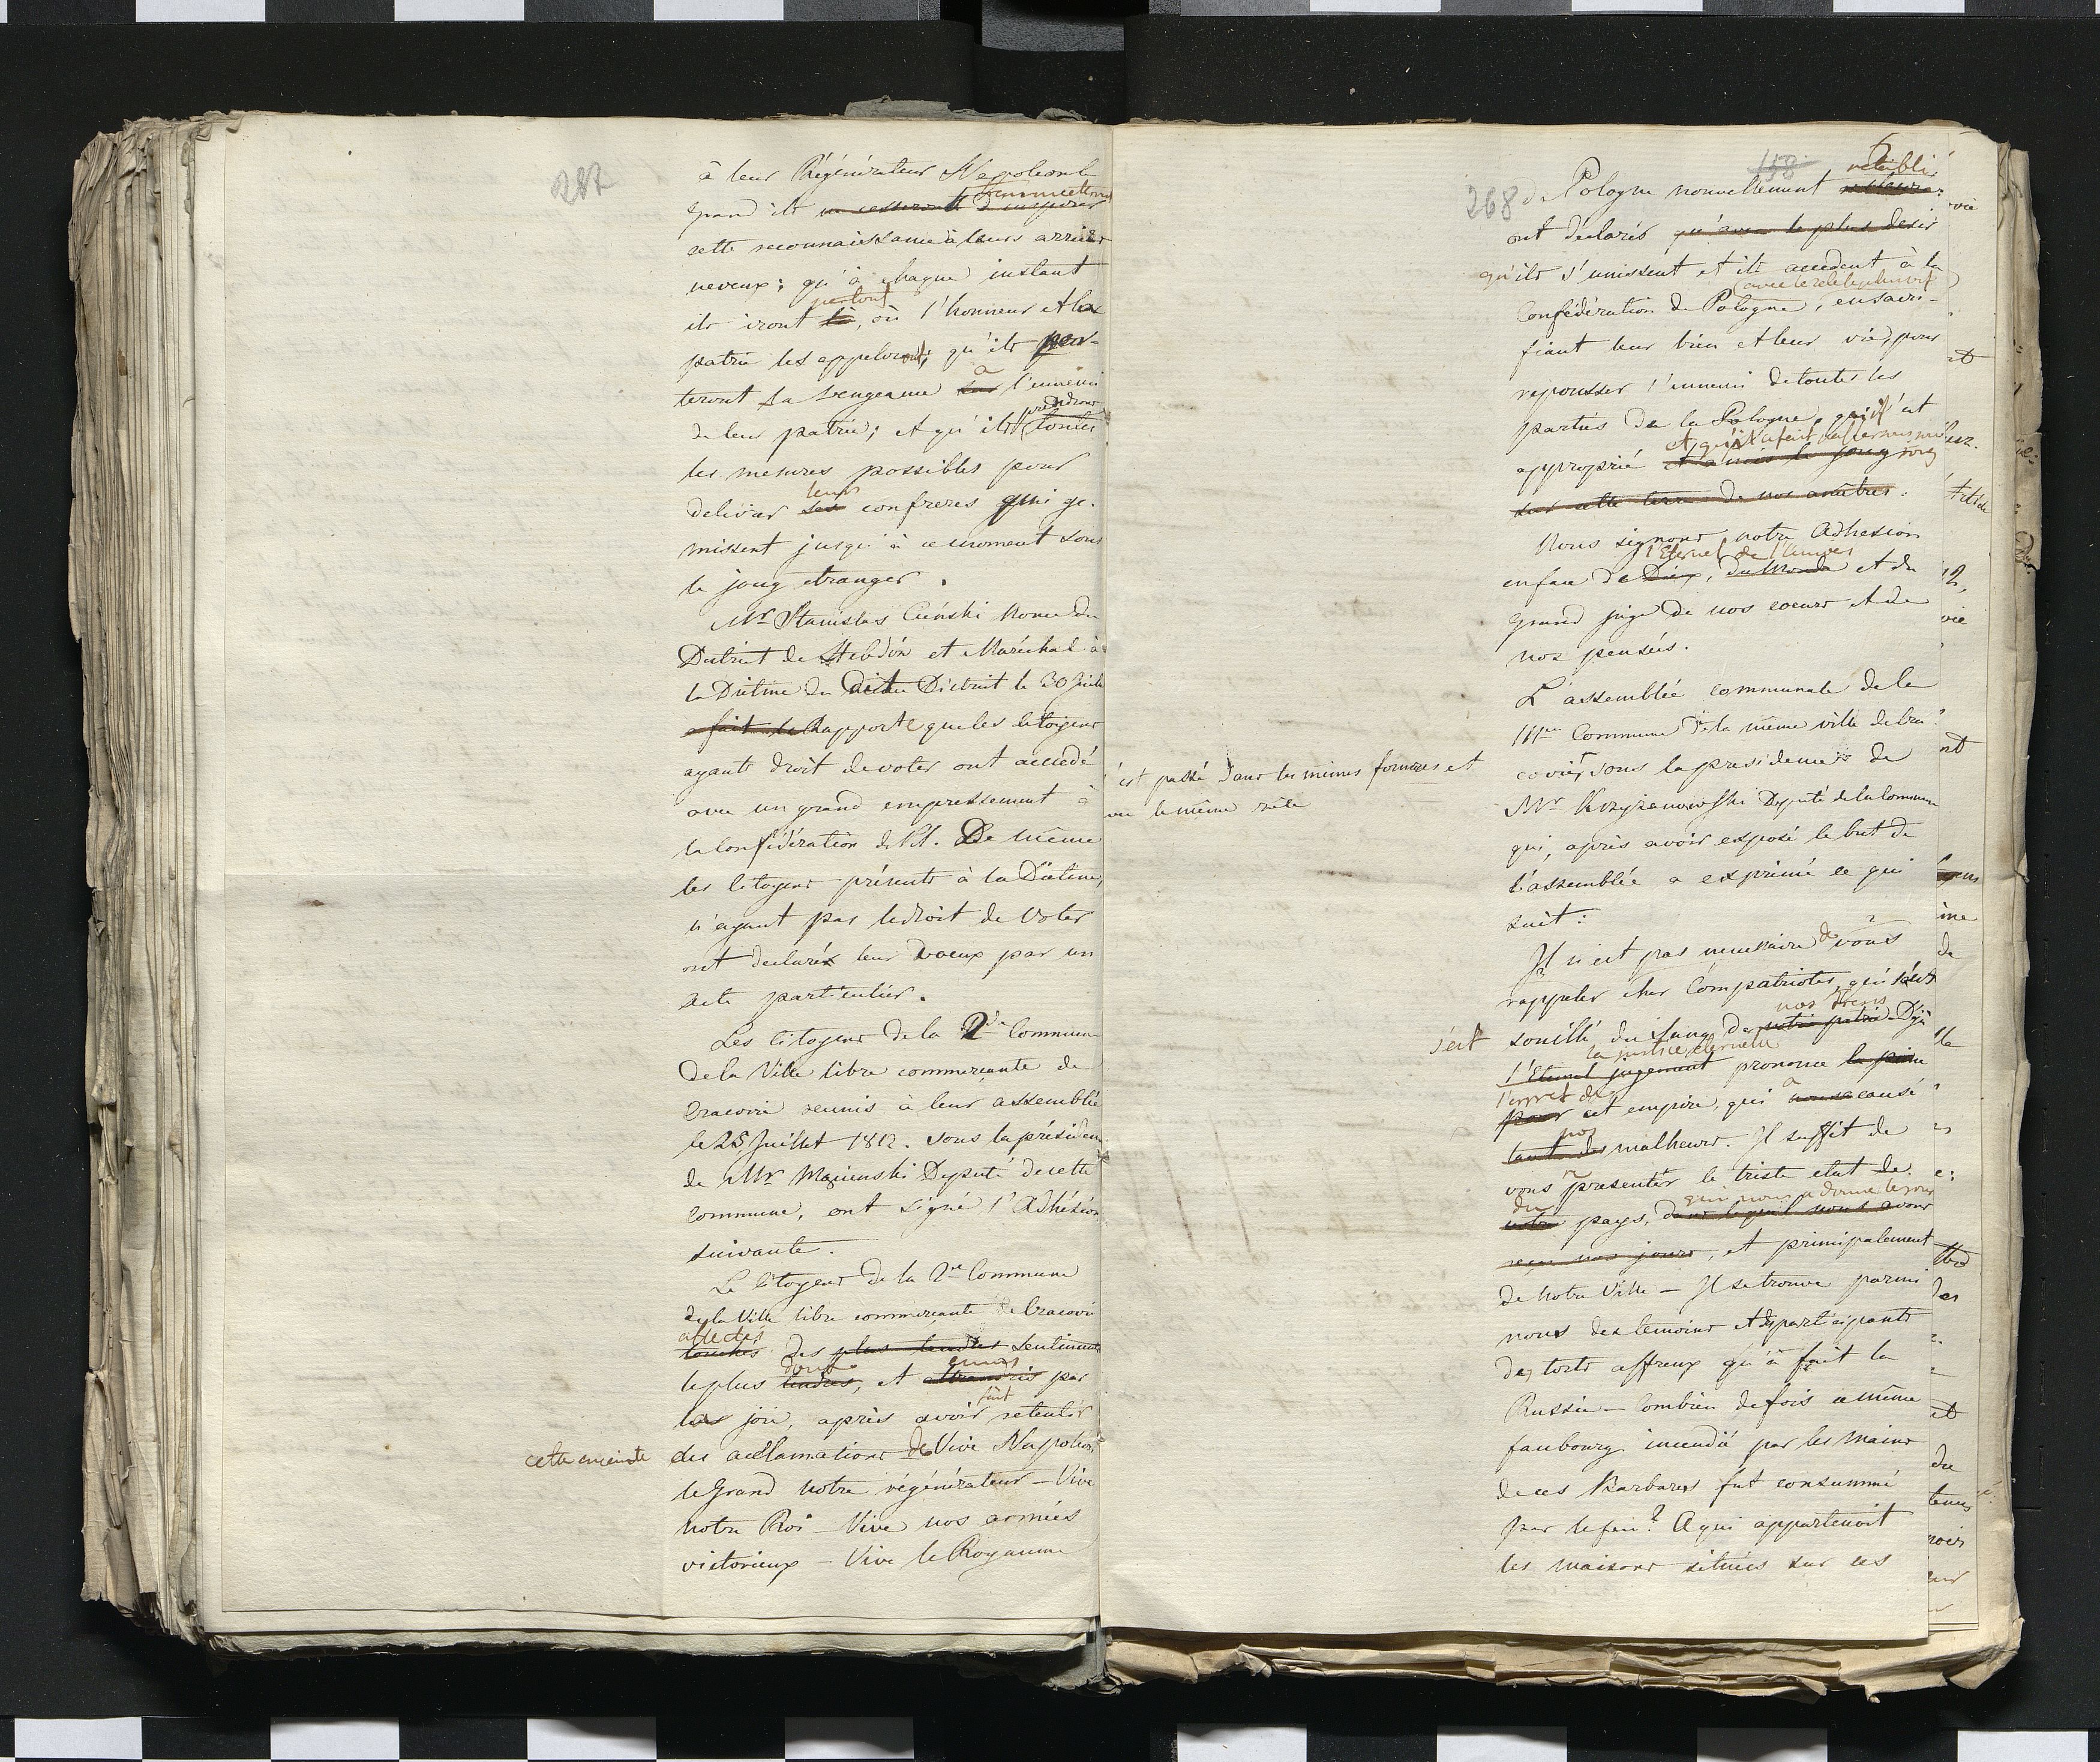 287
à leur Régénérateur Napoleon le
transmettront
grand ils ne cesseront d'inspirer
cette reconnaissance à leurs arrier
neveux; qu'à chaque instant
partout
ils iront là, où l'honneur et la
patrie les appeleront; qu'ils por-
à
teront la vengeance sur l'ennemi
prendront
de leur patrie; et qu'ils toutes
les mesures possibles pour
leurs
delivrer ses confreres qui ge-
missent jusqu'à ce moment sous
le joug etranger.
Mr Stanislas Nonce du
District de Hebdów et Maréchal à
la Diétine du dit District le 30 Juil
a fait le Rapporte que les Citoyens
ayants droit de voter ont accedé
avec un grand empressement à
la Confédération de Pol. De même
les Citoyens présents à la Diétine,
n'ayant pas le droit de voter
ont declaré leur voeux par un
acte particulier.
Les Citoyens de la 2de Commune
de la Ville libre commerçante de
Cracovie reunis à leur assemblée
le 25 Juillet 1812. sous la présidence
de Mr Députe de cette
commune, ont signé l'Adhésion
suivante.
Le Citoyens de la 2de Commune
de la Ville libre commerçante de Cracovie
affectés
touchés des plus tendres sentiments
doux emus
le plus tendres, et attendris par
fait
la joie, après avoir retentir
cette enceinte des acclamations de Vive Napoleon
le Grand notre régénérateur — Vive
notre Roi — Vive nos armées
victorieux — Vive le Royaume
158
268
retabli
de Pologne nouvellement
ont déclarés qu'avec le plus desir
qu'ils s'unissent et ils accedent à la
(avec le zèle le plus vif)
Confédération de Pologne, en sacri-
fiant leur bien et leur vie, pour
repousser l'ennemi de toutes les
parties de la Pologne, qu'il s'est
approprié et a mis le joug
sur cette terre de nos ancêtres.
Nous signons notre Adhesion
l'Eternel de l'Univers
en face de Dieu, du Monde et du
grand juge de nos coeurs et de
nos pensées.
L'assemblée communale de la
IIIme Commune de la même ville de Cra-
c'est passé dans les mêmes formes et
avec le même zèle
covie, sous la presidence de
Mr Krzyżanowski Député de la Commune
qui, après avoir exposé le but de
l'assemblée a exprimé ce qui
suit:
Il n'est pas necessaire de vous
rappeler cher Compatriotes, qui s'est
nos freres
s'est souillé du sang de notre patrie. Déjà
la justice eternelle
l'Eternel jugement prononce la peine
l'arret de
pour cet empire, qui a nous causé
nos
tant des malheurs. Il suffit de
vous presenter le triste etat de
du qui nous a donné le jour
notre pays, dans lequel nous avons
reçu nos jours, et principalement
de notre Ville — Il se trouve parmi
nous des temoins et des participants
des torts affreux qu'à fait la
Russie — Combien de fois ce même
faubourg incendié par les mains
de ces Barbares fut consummé
par le feu? A qui appartenoit
les maisons situées sur ces